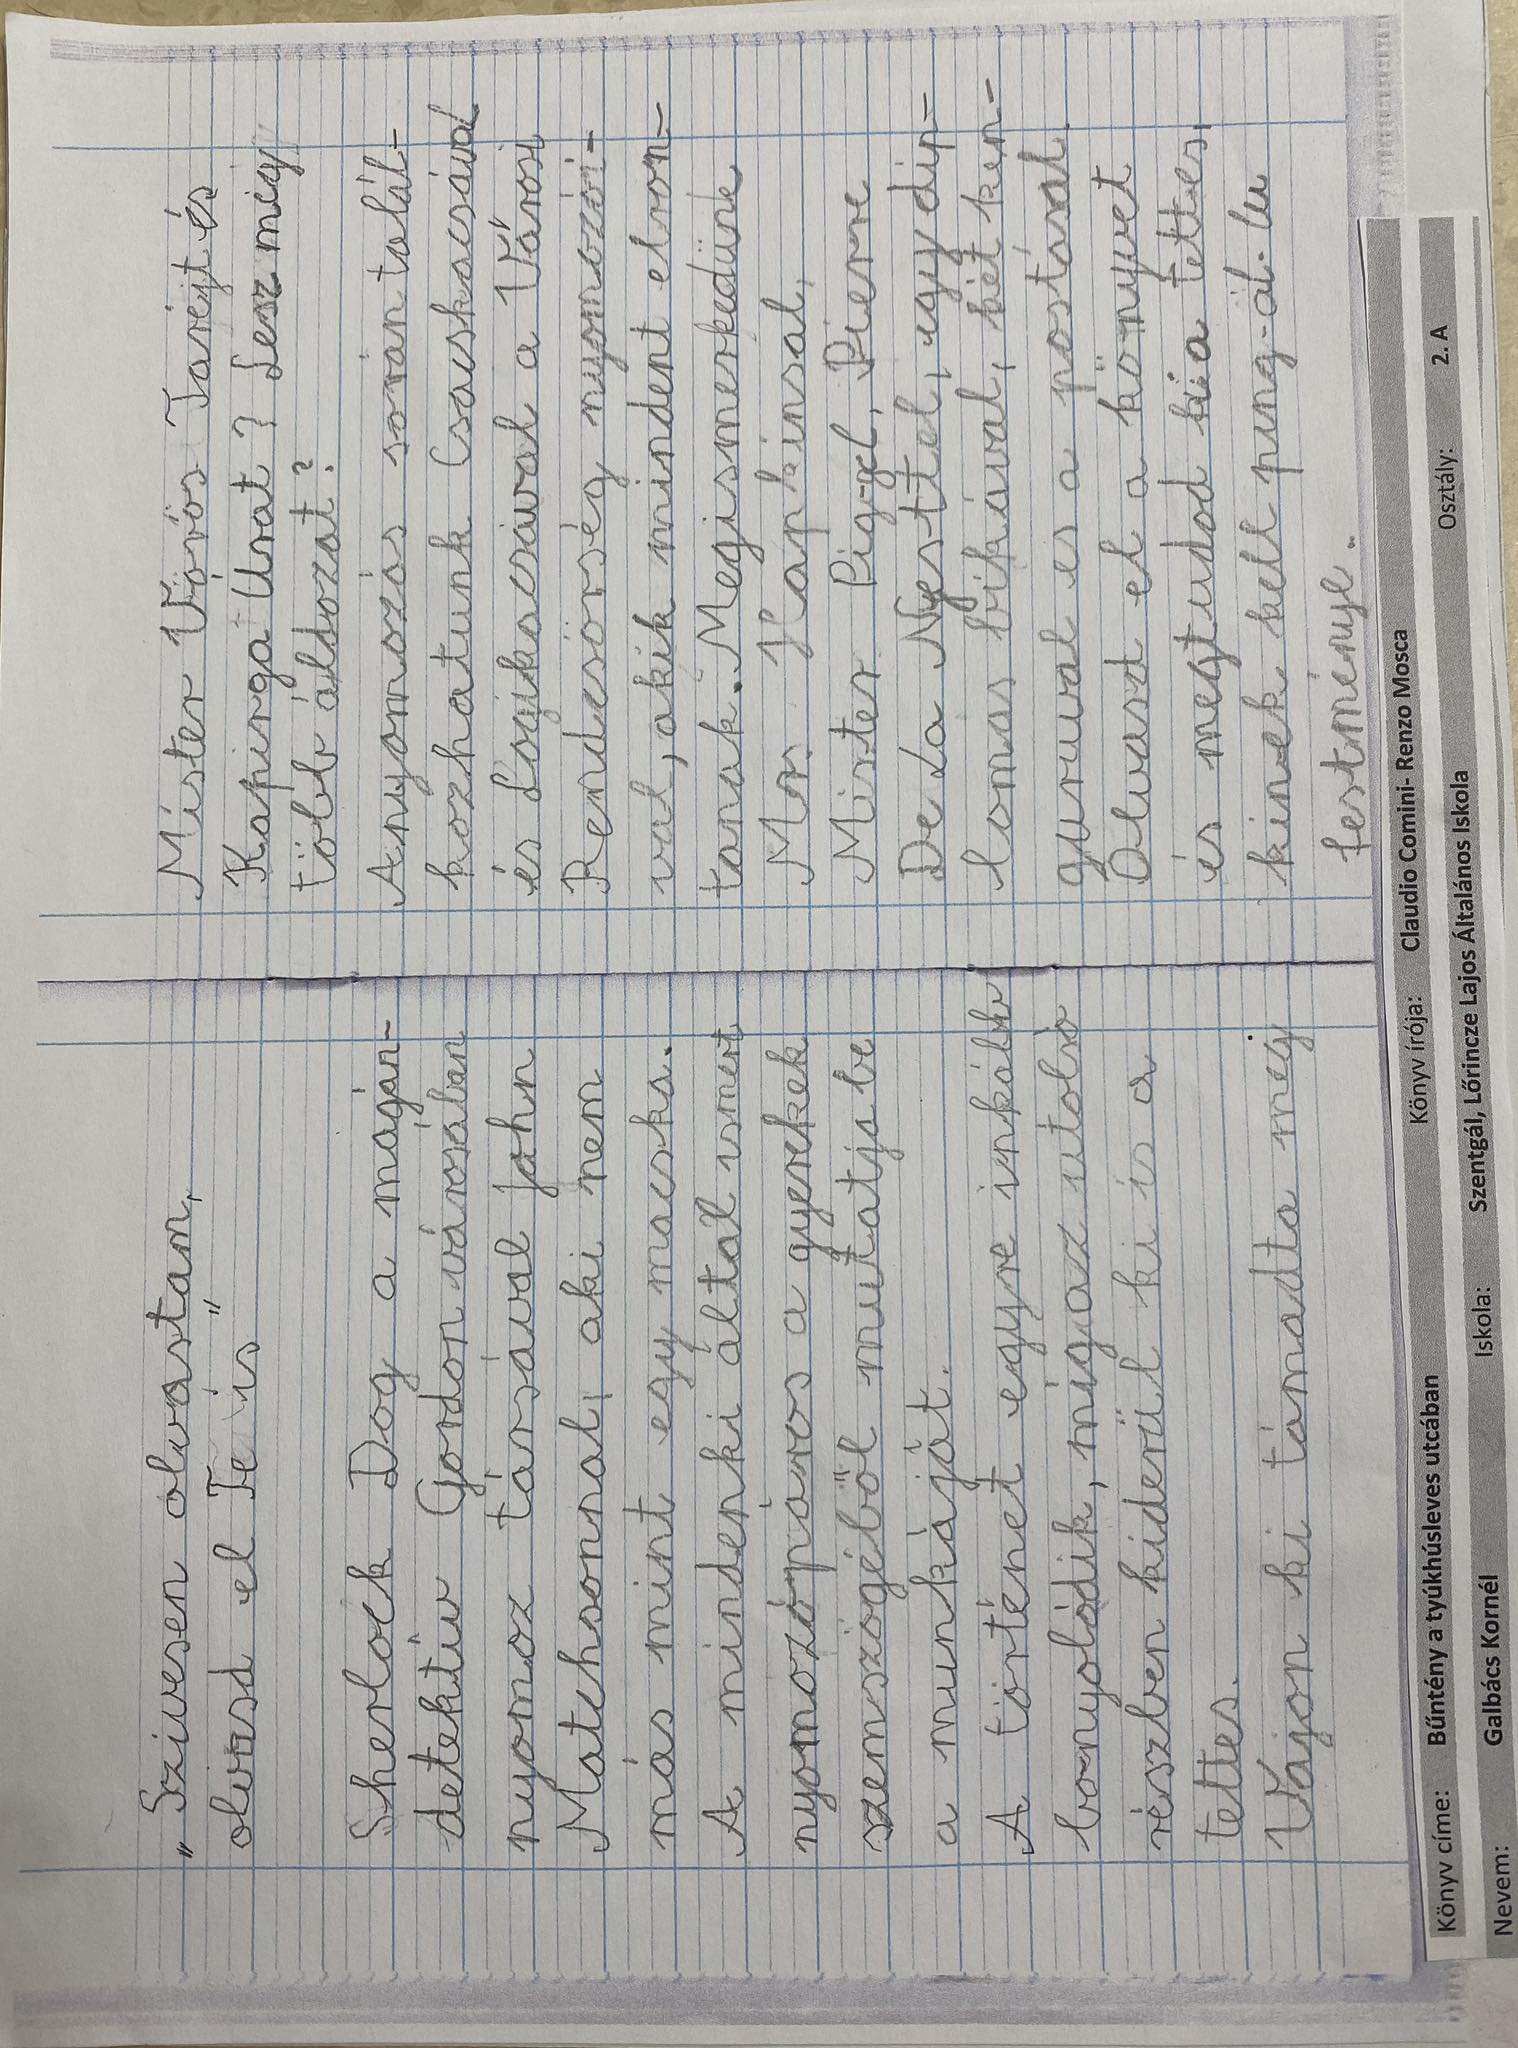 „Szivesen olvastam,
olvasd el Te is"
Sherlock Dog a magán-
detektiv Gordon városában
nyomoz társával john
Matchsonnal, aki nem
más mint egy macska.
A mindenki által ismert
nyomozópáros a gyerekek
szemszögéből mutatja be
a munkáját.
A történet egyre inkább
bonyolódik, míg az utolsó
részben kiderül ki is a
tettes.
Vajon ki támadta meg
Míster Vörös Taréjt és
Kapirga Urat? Lesz még
több áldozat?
A nyomozás során talál-
kozhatunk Csacskacsával
és Logikacsával a Városi
Rendcsőrség nyomozói-
val, akik mindent elron-
tanak. Megismerkedünk
Mrs. Hapkinsal,
Mister Pig-gel, Pierre
De La Nyesttel, egy dip-
lomas bikával, két ken-
guruval es a postásal.
Olvasd el a könyvet
és megtudod ki a tettes,
kinek kell pung-ál-lu
festménye.
Könyv címe: Bűntény a tyúkhúsleves utcában Könyv írója: Claudio Comini- Renzo Mosca
Nevem: Galbács Kornél Iskola: Szentgál, Lőrincze Lajos Általános Iskola Osztály: 2. A